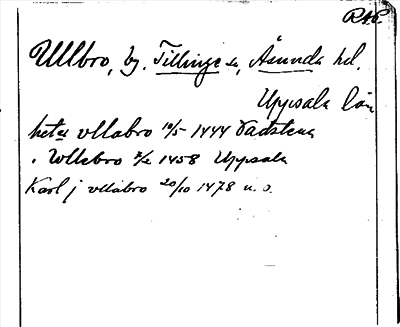 RAP.
Ullbro, by. Tillinge sn, Åsunda hd.
Uppsala län
heter vllabro 10/5 1444 Vadstena
. Wllebro 2/2 1458 Uppsala
Karl j vllabro 20/10 1478 u. o.